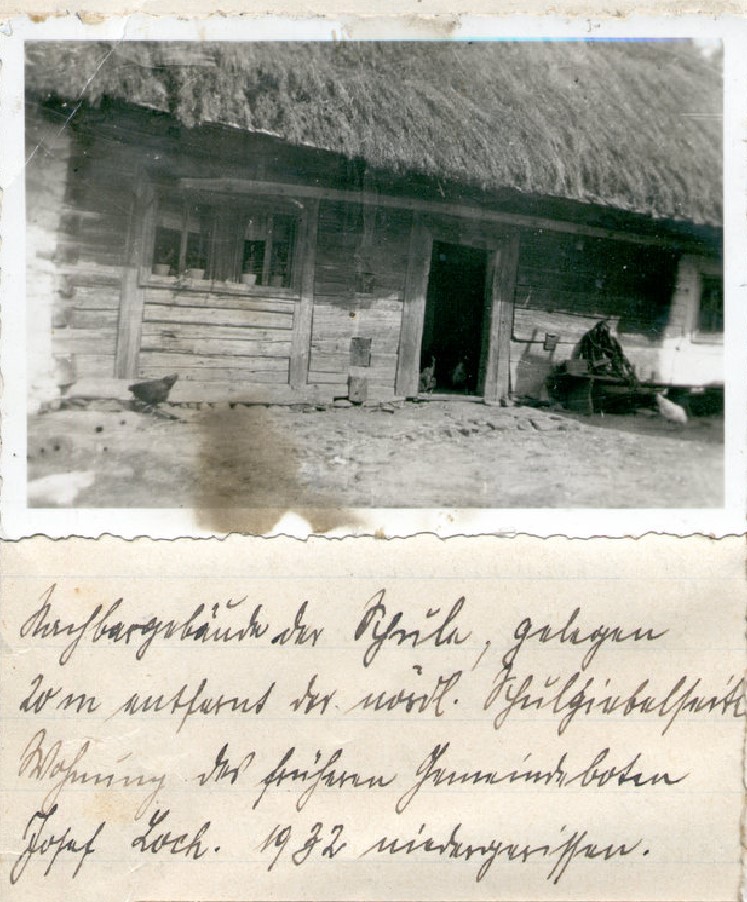 Nachbargebäude der Schule, gelegen
20 m entfernt der nördl. Schulgiebelseite
Wohnung des früheren Gemeindeboten
Josef Loch. 1932 niedergerissen.